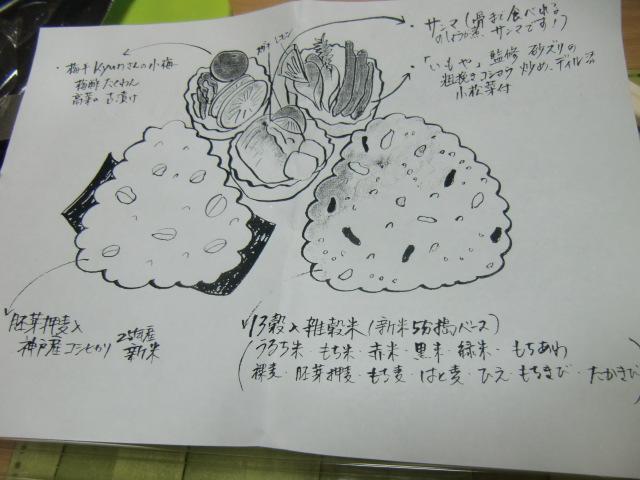 ・梅干Kyuuさんの小梅
梅酢たくわん
高菜の古漬け
柚子大根
・サンマ(骨まで食べれる
のしょうが煮、サンマです!)
・「いもや」監修 砂ズリの
粗挽きコショウ炒め、ディル&
小松菜付
胚芽押麦入
神戸産コシヒカリ
25年産
新米
13穀入雑穀米(新米5分搗ベース)
(うるち米・もち米・赤米・黒米・緑米・もちあわ
裸麦・胚芽押麦・もち麦・はと麦・ひえ・もちきび・たかきび)